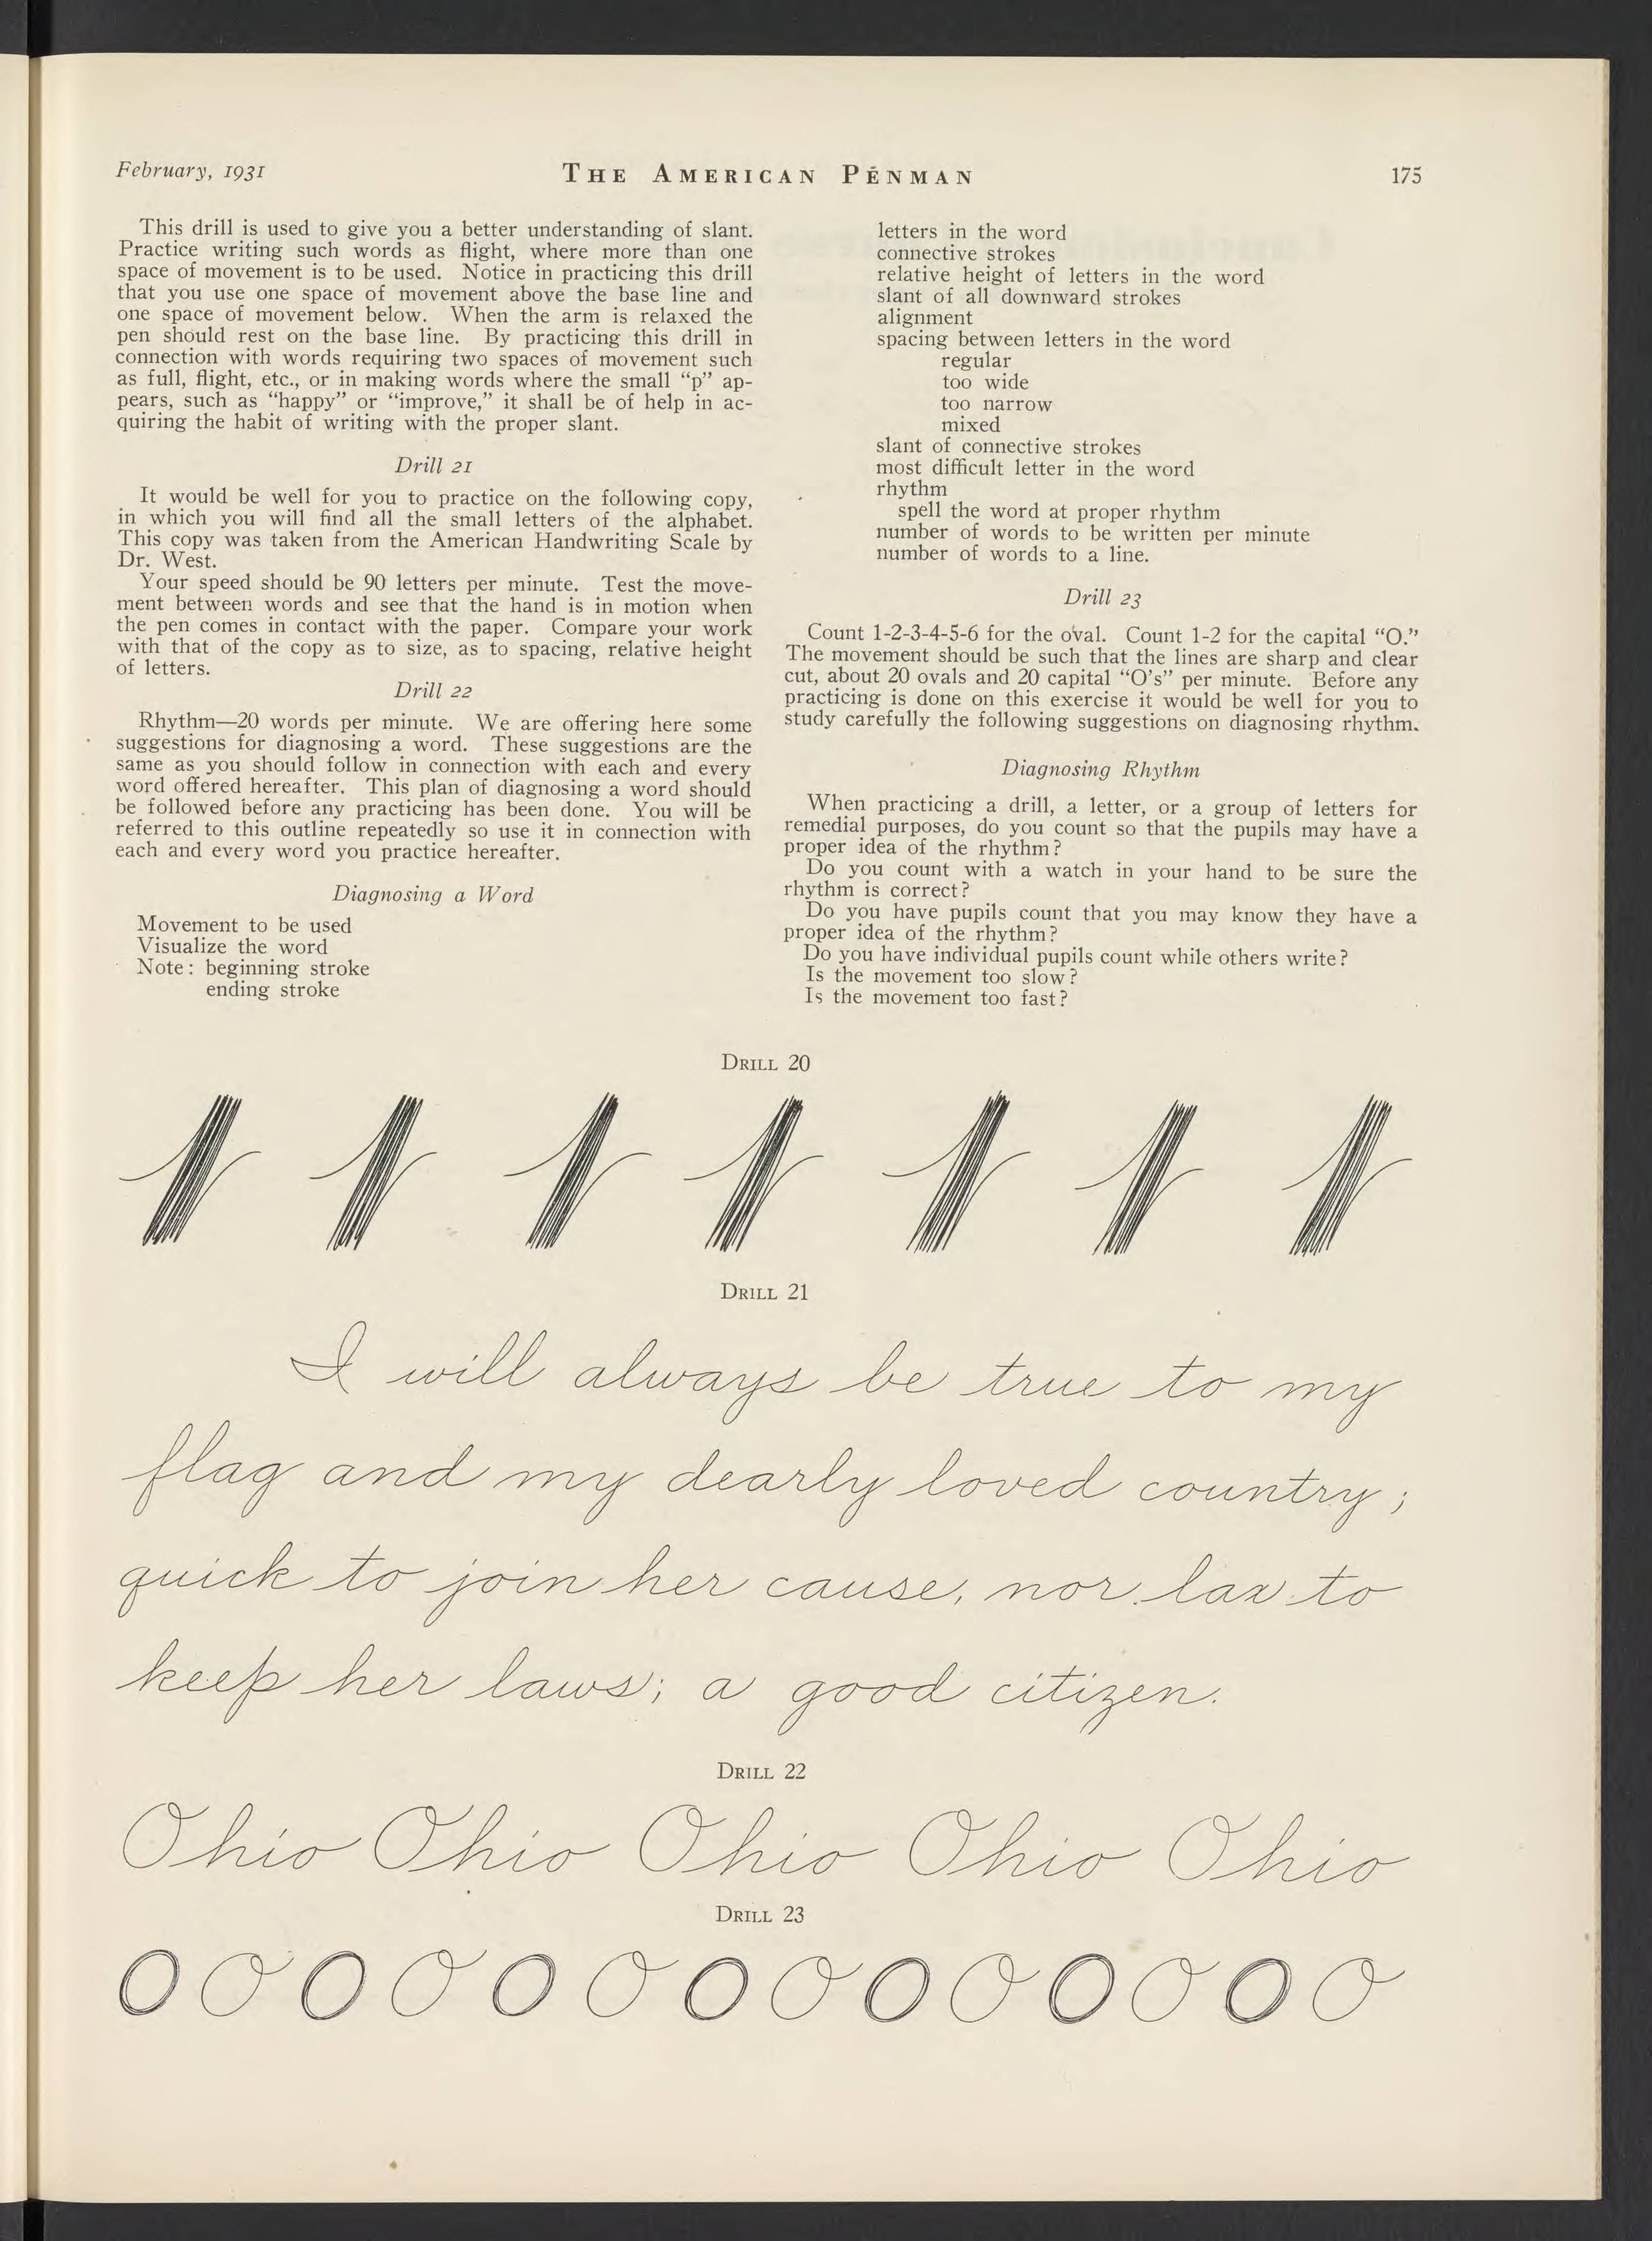 February, 1931
THE AMERICAN PENMAN
175
This drill is used to give you a better understanding of slant.
Practice writing such words as flight, where more than one
space of movement is to be used. Notice in practicing this drill
that you use one space of movement above the base line and
one space of movement below. When the arm is relaxed the
pen should rest on the base line. By practicing this drill in
connection with words requiring two spaces of movement such
as full, flight, etc., or in making words where the small “p” ap-
pears, such as “happy” or “improve,” it shall be of help in ac-
quiring the habit of writing with the proper slant.
Drill 21
It would be well for you to practice on the following copy,
in which you will find all the small letters of the alphabet.
This copy was taken from the American Handwriting Scale by
Dr. West.
Your speed should be 90 letters per minute. Test the move-
ment between words and see that the hand is in motion when
the pen comes in contact with the paper. Compare your work
with that of the copy as to size, as to spacing, relative height
of letters.
Drill 22
Rhythm—20 words per minute. We are offering here some
suggestions for diagnosing a word. These suggestions are the
same as you should follow in connection with each and every
word offered hereafter. This plan of diagnosing a word should
be followed before any practicing has been done. You will be
referred to this outline repeatedly so use it in connection with
each and every word you practice hereafter.
Diagnosing a Word
Movement to be used
Visualize the word
Note: beginning stroke
ending stroke
letters in the word
connective strokes
relative height of letters in the word
slant of all downward strokes
alignment
spacing between letters in the word
regular
too wide
too narrow
mixed
slant of connective strokes
most difficult letter in the word
rhythm
spell the word at proper rhythm
number of words to be written per minute
number of words to a line.
Drill 23
Count 1-2-3-4-5-6 for the oval. Count 1-2 for the capital “O.”
The movement should be such that the lines are sharp and clear
cut, about 20 ovals and 20 capital “O’s” per minute. Before any
practicing is done on this exercise it would be well for you to
study carefully the following suggestions on diagnosing rhythm.
Diagnosing Rhythm
When practicing a drill, a letter, or a group of letters for
remedial purposes, do you count so that the pupils may have a
proper idea of the rhythm?
Do you count with a watch in your hand to be sure the
rhythm is correct?
Do you have pupils count that you may know they have a
proper idea of the rhythm?
Do you have individual pupils count while others write?
Is the movement too slow?
Is the movement too fast?
DRILL 20
DRILL 21
I will always be true to my
flag and my dearly loved country;
quick to join her cause, nor lax to
keep her laws; a good citizen.
DRILL 22
Ohio Ohio Ohio Ohio Ohio
DRILL 23
O O O O O O O O O O O O O O